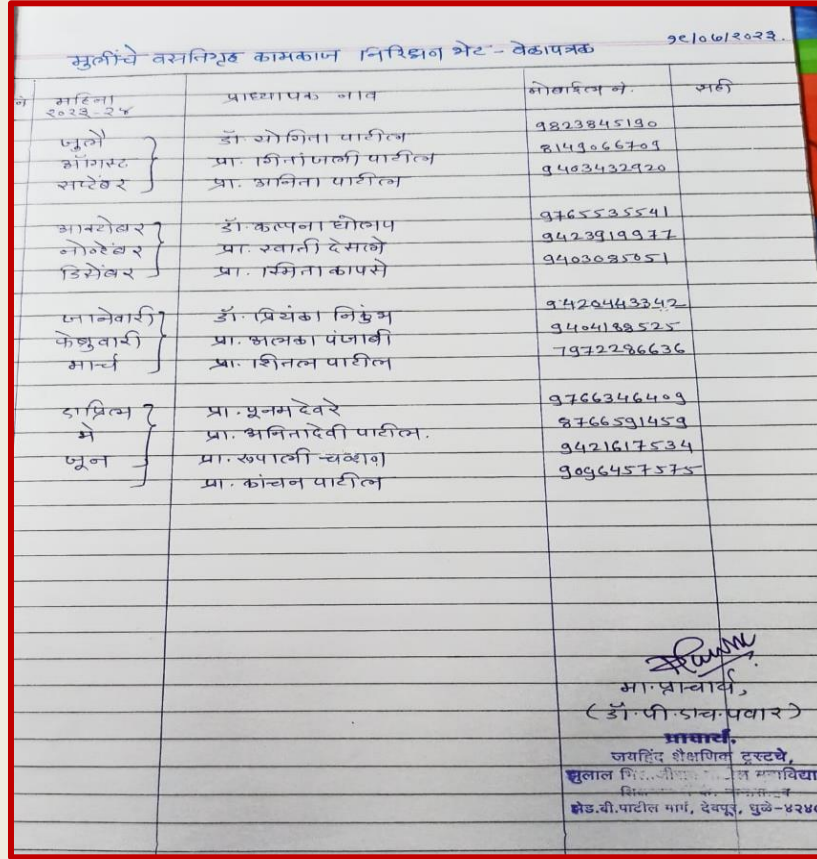 १९/०७/२०२३.
मुलींचे वसतिगृह कामकाज निरिक्षण भेट - वेळापत्रक
नं महिना २०२३-२४ प्राध्यापक नाव मोबाईल नं. सही
जुलै डॉ. योगिता पाटील 9823845190
ऑगस्ट प्रा. गितांजली पाटील 8149066709
सप्टेंबर प्रा. अनिता पाटील 9403432920
आक्टोबर डॉ. कल्पना घोलप 9765535541
नोव्हेंबर प्रा. स्वाती देसले 9423919977
डिसेंबर प्रा. स्मिता कापसे 9403085051
जानेवारी डॉ. प्रियंका निकुंभ 9420443342
फेब्रुवारी प्रा. अलका पंजाबी 9404188525
मार्च प्रा. शितल पाटील 7972286636
एप्रिल प्रा. पूनम देवरे 9766346409
मे प्रा. अनितादेवी पाटील. 8766591459
जून प्रा. रुपाली चव्हाण 9421617534
प्रा. कांचन पाटील 9096457575
मा. प्राचार्य,
(डॉ. पी. एच. पवार)
प्राचार्य.
जयहिंद शैक्षणिक ट्रस्टचे,
झुलाल
झेड.बी.पाटील मार्ग, देवपूर, धुळे-४२४